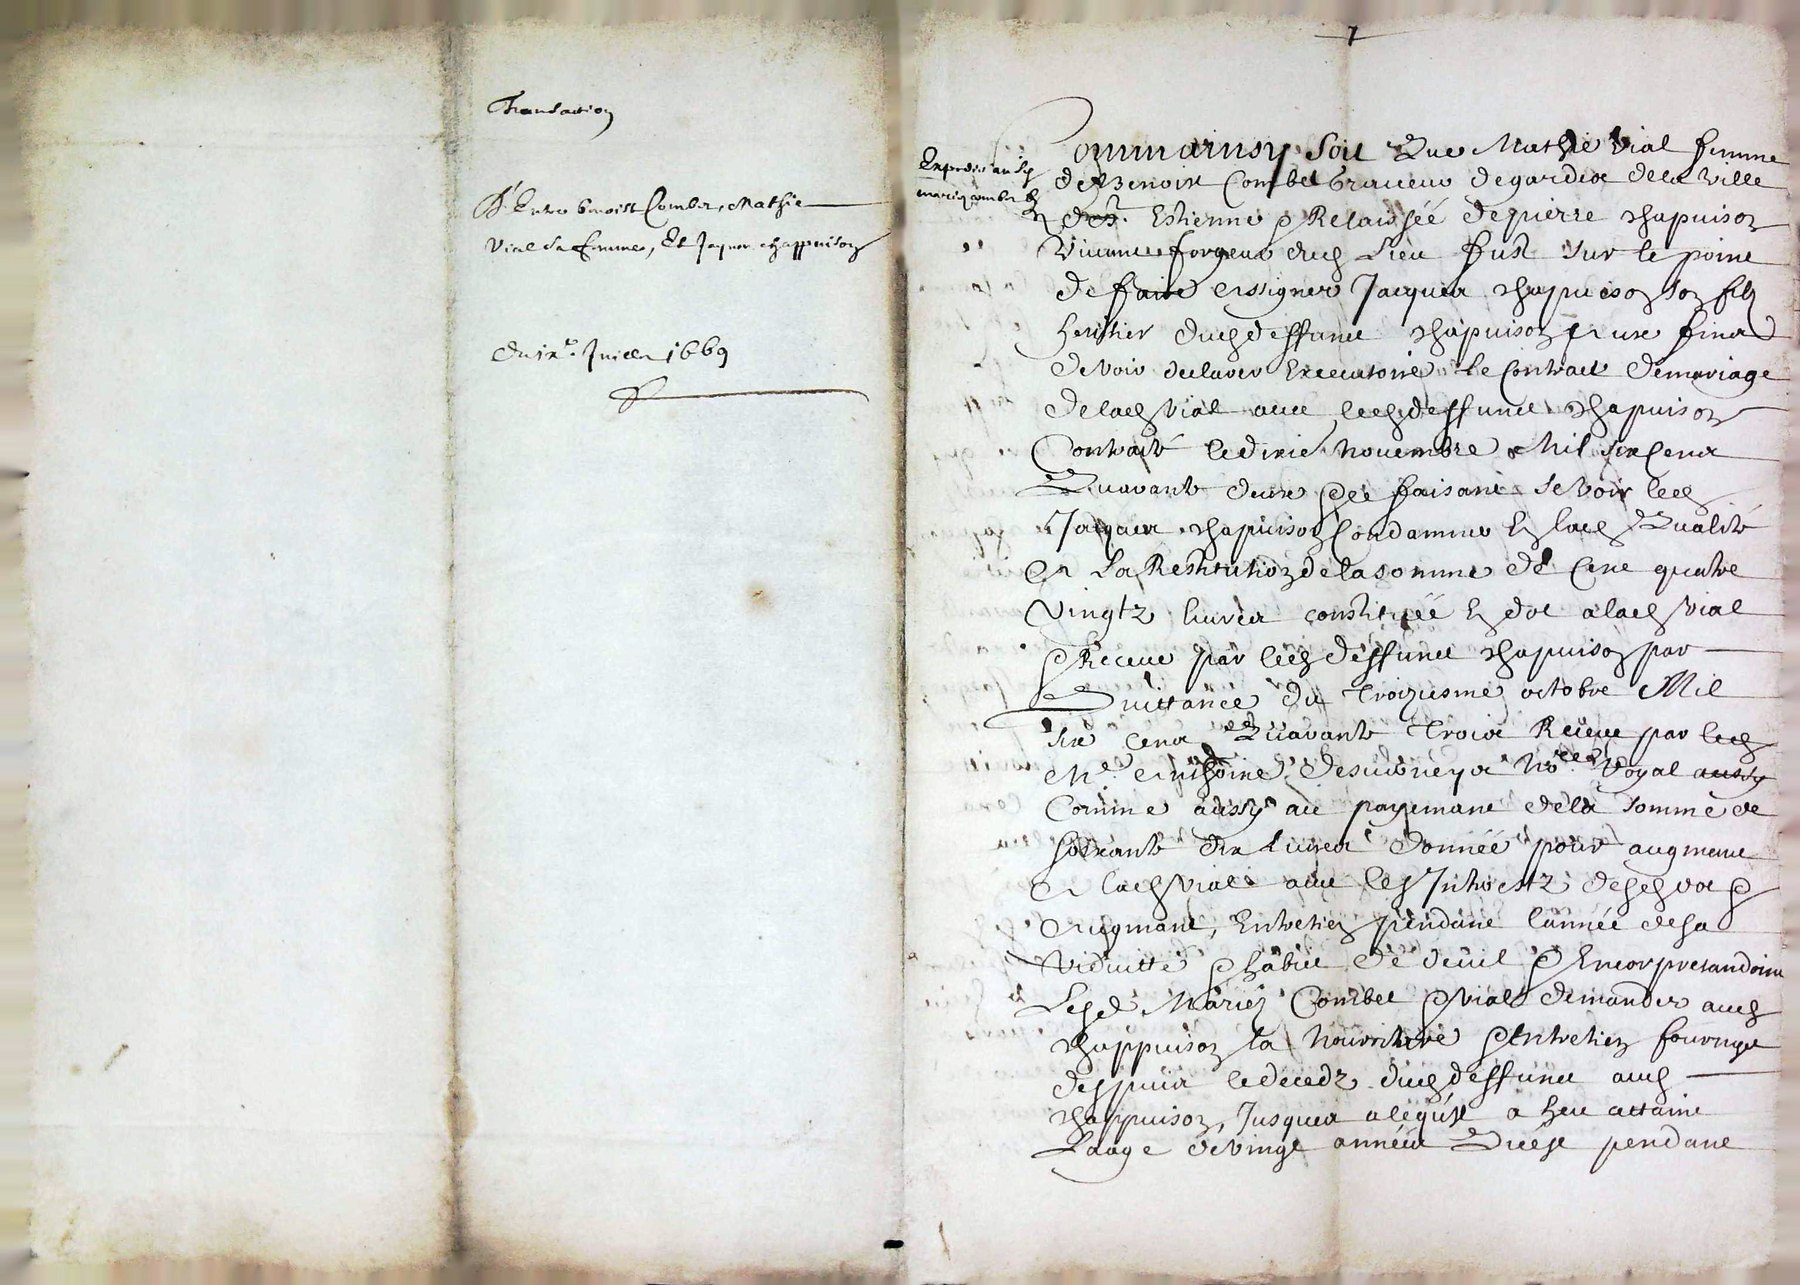 Transaction
D'Entre benoist Combet, Mathie
Vial sa femme, Et Jaques chappuison
Du ixe. Juillet 1669
1
Expedié aud.
marié combet
Comm'ainsy soit Que Mathie Vial femme
de Benoist Combet graveur de gardes de la ville
de St. Estienne & Relaissée de pierre chapuison
Vivant forgeur dud lieu fust sur le point
de faire assigner Jacques chapuison son filz
heritier dud deffunct chapuison aux fins
de voir declarer Executoire le Contract de mariage
de lad Vial avec led deffunct chapuison
Contracté le dixie. novembre Mil six cens
Quarante deux & ce faisant se voir led
Jacques chapuison Condamner En lad Qualité
A La Restitution de la somme de Cent quatre
vingtz livres constituée En dot a lad Vial
& Receue par led deffunct chapuison par
Quittance du Troiziesme octobre Mil
six cens Quarante Trois Receue par led
Me. Anthoine Desverneys No.re Royal aussy
Comme aussy au payemant de la somme de
soixante dix livres donnée pour augment
A lad Vial avec les Intherestz desd dot &
Augmant, Entretien pendant l'année de sa
Viduitté & habit de deuil & Encor pretandoint
Lesd Mariez Combet & Vial demander aud
chappuison la nourriture & Entretien fournye
despuis le decedz dud deffunct aud
chappuison, Jusques a ce qu'il a heu attaint
L'aage de vingt années Qu'est pendant